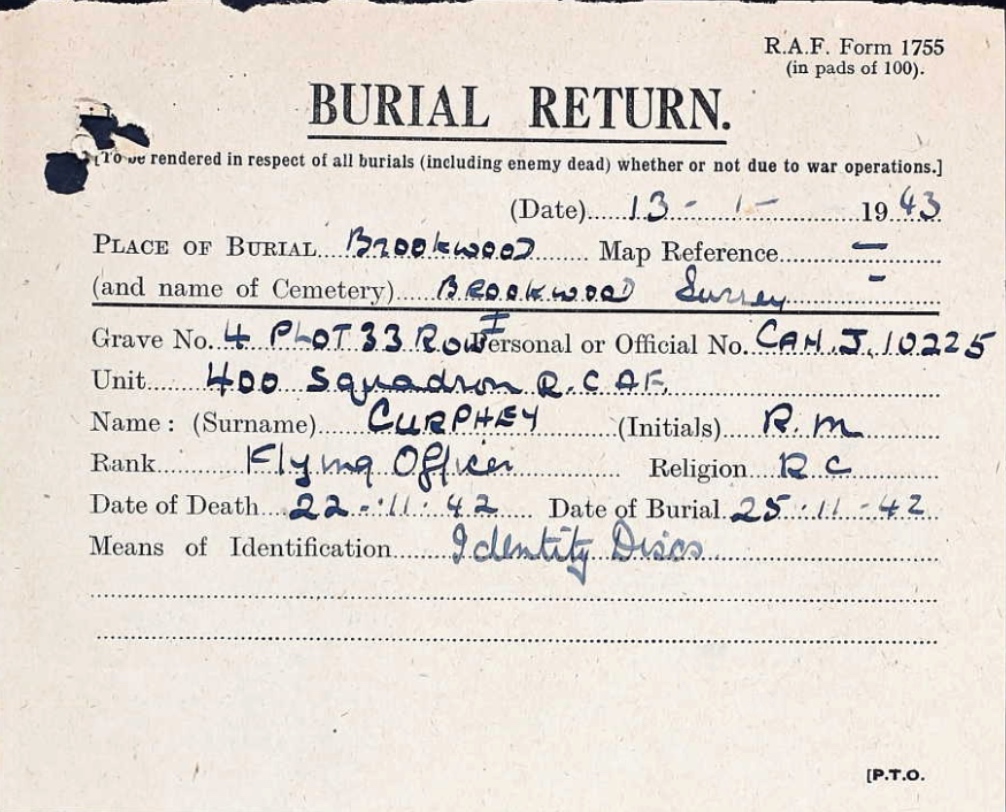 R.A.F. Form 1755
(in pads of 100).
BURIAL RETURN.
[To be rendered in respect of all burials (including enemy dead) whether or not due to war operations.]
(Date) 13 - 1 - 1943
PLACE OF BURIAL Brookwood Map Reference —
(and name of Cemetery) BROOKWOOD Surrey -
Grave No. 4 PLOT 33 ROW I Personal or Official No. CAN.J.10225
Unit 400 Squadron R.C.A.F.
Name: (Surname) CURPHEY (Initials) R.M
Rank Flying Officer Religion R C
Date of Death 22-11-42 Date of Burial 25-11-42
Means of Identification Identity Discs
[P.T.O.